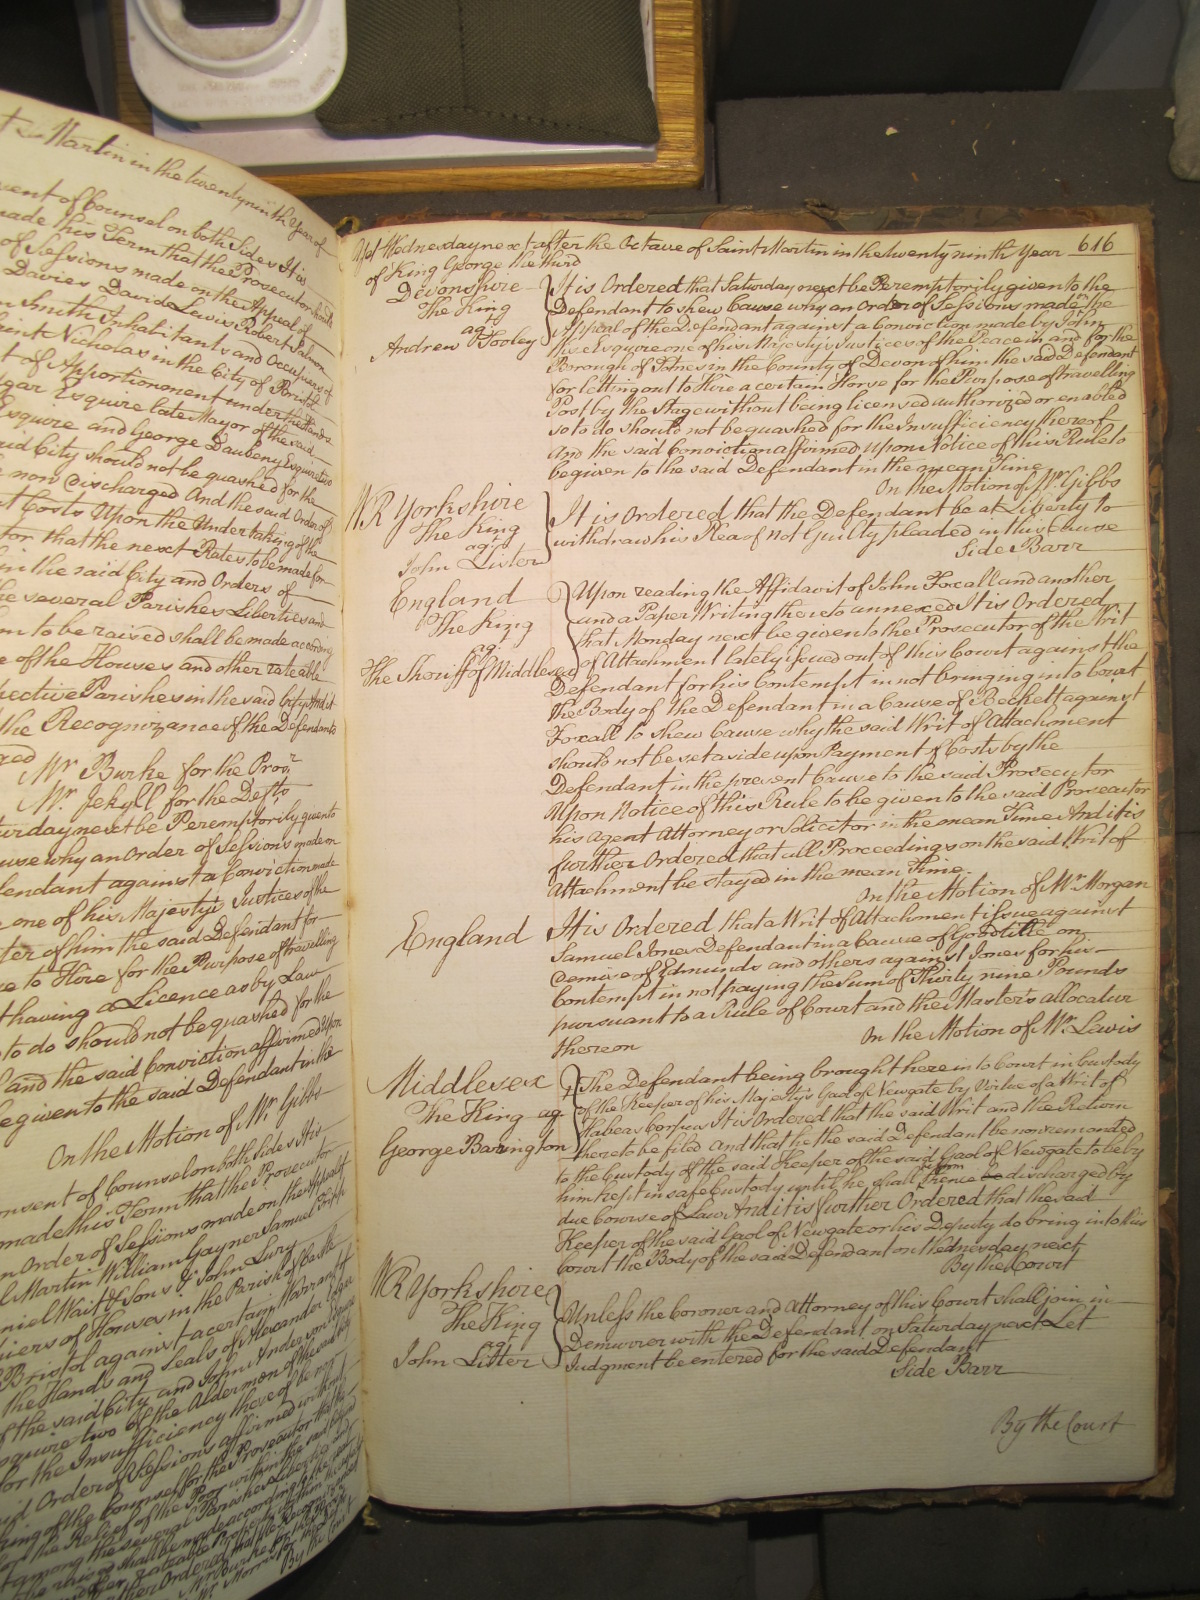 Martin in the twenty ninth Year of
ent of Counsel on both Sides It is
made this Term that the Prosecutor
of Sessions made on the Appeal of
Davies David Lewis Robert
Smith Inhabitants and Occupiers of
Saint Nicholas in the City of Bristol
of Apportionment under the Hands
Esquire late Mayor of the said
Esquire and George Daubeny Esquire
said City should not be quashed for the
now discharged And the said Order of
Costs Upon the Undertaking of the
for that the next Rates to be made for
in the said City and Orders of
several Parishes Liberties and
to be raised shall be made according
of the Houses and other rateable
Parishes in the said City And it
the Recognizance of the Defendants
Mr. Burke for the Pros.r
Mr. Jekyll for the Defts
Saturday next be Peremptorily given to
Cause why an Order of Sessions made on
Defendant against a Conviction made
one of his Majestys Justices of the
of him the said Defendant for
to Hire for the Purpose of travelling
having a Licence as by Law
to do should not be quashed for the
and the said Conviction affirmed Upon
be given to the said Defendant in the
On the Motion of Mr. Gibbs
Consent of Counsel on both Sides It is
made this Term that the Prosecutor
an Order of Sessions made on the Appeal of
Martin William Gayner Samuel
Daniel Wait & Sons & John Lury
Occupiers of Houses in the Parish of
Bristol against a certain Warrant of
the Hands and Seals of Alexander
of the said City and John Anderson
Esquire two of the Aldermen of the said City
for the Insufficiency thereof be now
Order of Sessions affirmed without
of the Counsel for the Prosecutor that
for the Relief of the Poor within the said
among the several Parishes Liberties and
Mr. Burke for the
By the Court
Yet Wednesday next after the Octave of Saint Martin in the twenty ninth Year 616
of King George the third
Devonshire
The King
agt
Andrew Tooley
It is Ordered that Saturday next be Peremptorily given to the
Defendant to shew Cause why an Order of Sessions made on the
Appeal of the Defendant against a Conviction made by John
Esquire one of his Majestys Justices of the Peace in and for the
Borough of Totnes in the County of Devon of him the said Defendant
for letting out to Hire a certain Horse for the Purpose of travelling
Post by the Stage without being licensed authorized or enabled
so to do should not be quashed for the Insufficiency thereof
And the said Conviction affirmed Upon Notice of this Rule to
be given to the said Defendant in the mean Time
On the Motion of Mr. Gibbs
W R Yorkshire
The King
agt
John Lister
It is Ordered that the Defendant be at Liberty to
withdraw his Plea of not Guilty pleaded in this Cause
Side Barr
England
The King
agt
The Sheriff of Middlesex
Upon reading the Affidavit of John Foxcall and another
and a Paper Writing thereto annexed It is Ordered
that Monday next be given to the Prosecutor of the Writ
of Attachment lately issued out of this Court against the
Defendant for his Contempt in not bringing into Court
the Body of the Defendant in a Cause of Beckett against
Foxcall to shew Cause why the said Writ of Attachment
should not be set aside upon Payment of Costs by the
Defendant in the present Cause to the said Prosecutor
Upon Notice of this Rule to be given to the said Prosecutor
his Agent Attorney or Solicitor in the mean Time And it is
further Ordered that all Proceedings on the said Writ of
Attachment be stayed in the mean Time.
On the Motion of Mr. Morgan
England
It is Ordered that a Writ of Attachment issue against
Samuel Jones Defendant in a Cause of Goodtitle on
demise of Edmunds and others against Jones for his
Contempt in not paying the Sum of Thirty nine Pounds
pursuant to a Rule of Court and the Master's allocatur
thereon
On the Motion of Mr. Lewis
Middlesex
The King agt
George Barington
The Defendant being brought here into Court in Custody
of the Keeper of his Majesty's Gaol of Newgate by Virtue of a Writ of
Habeas Corpus It is Ordered that the said Writ and the Return
thereto be filed And that he the said Defendant be now remanded
to the Custody of the said Keeper of the said Gaol of Newgate to be by
him kept in safe Custody until he shall from thence be discharged by
due Course of Law And it is further Ordered that the said
Keeper of the said Gaol of Newgate or his Deputy do bring into this
Court the Body of the said Defendant on Wednesday next
By the Court
W R Yorkshire
The King
agt
John Lister
Unless the Coroner and Attorney of this Court shall join in
Demurrer with the Defendant on Saturday next Let
Judgment be entered for the said Defendant
Side Barr
By the Court